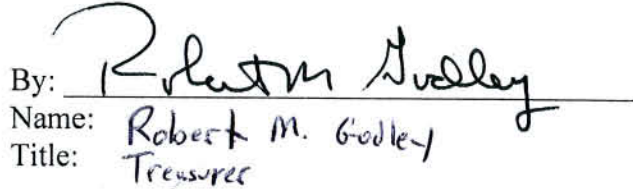 By: Robert M Godley
Name: Robert M. Godley
Title: Treasurer